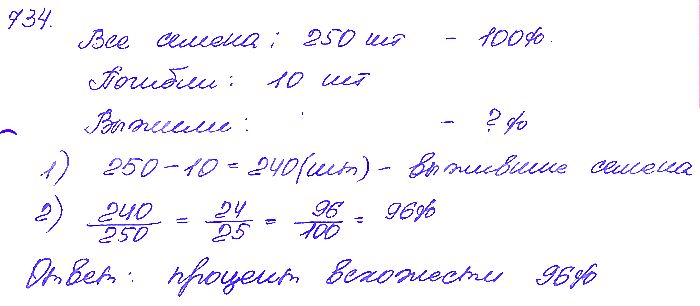 734.
Все семена: 250 шт - 100%.
Погибли: 10 шт
Выжили: - ?%
1) 250 - 10 = 240 (шт) - выжившие семена
2) 240/250 = 24/25 = 96/100 = 96%
Ответ: процент всхожести 96%